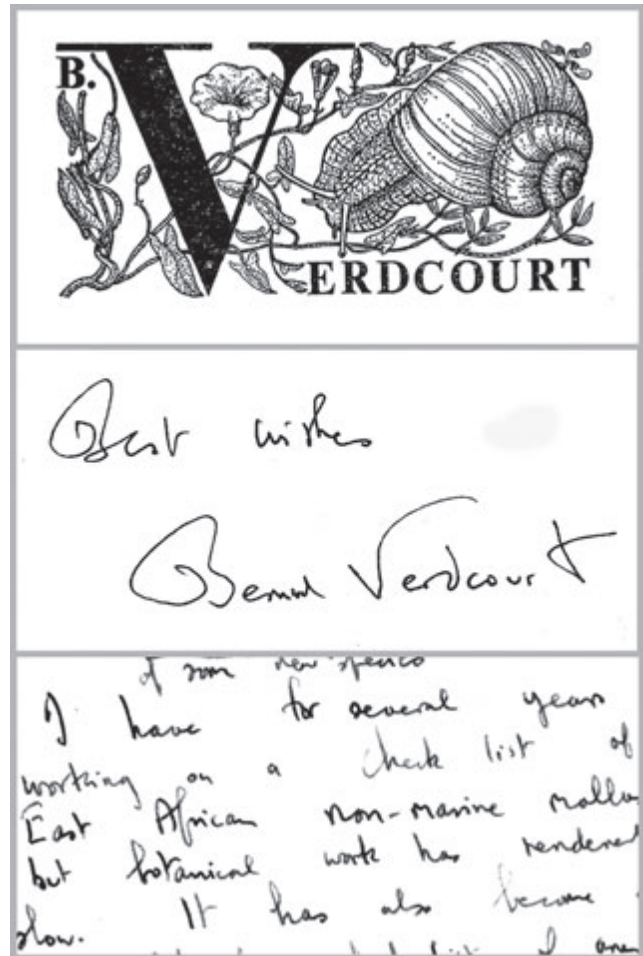 B. VERDCOURT
Best wishes
Bernard Verdcourt
of some new species
I have for several years
working on a check list of
East African non-marine mollu
but botanical work has rendered
slow. It has also become
list of